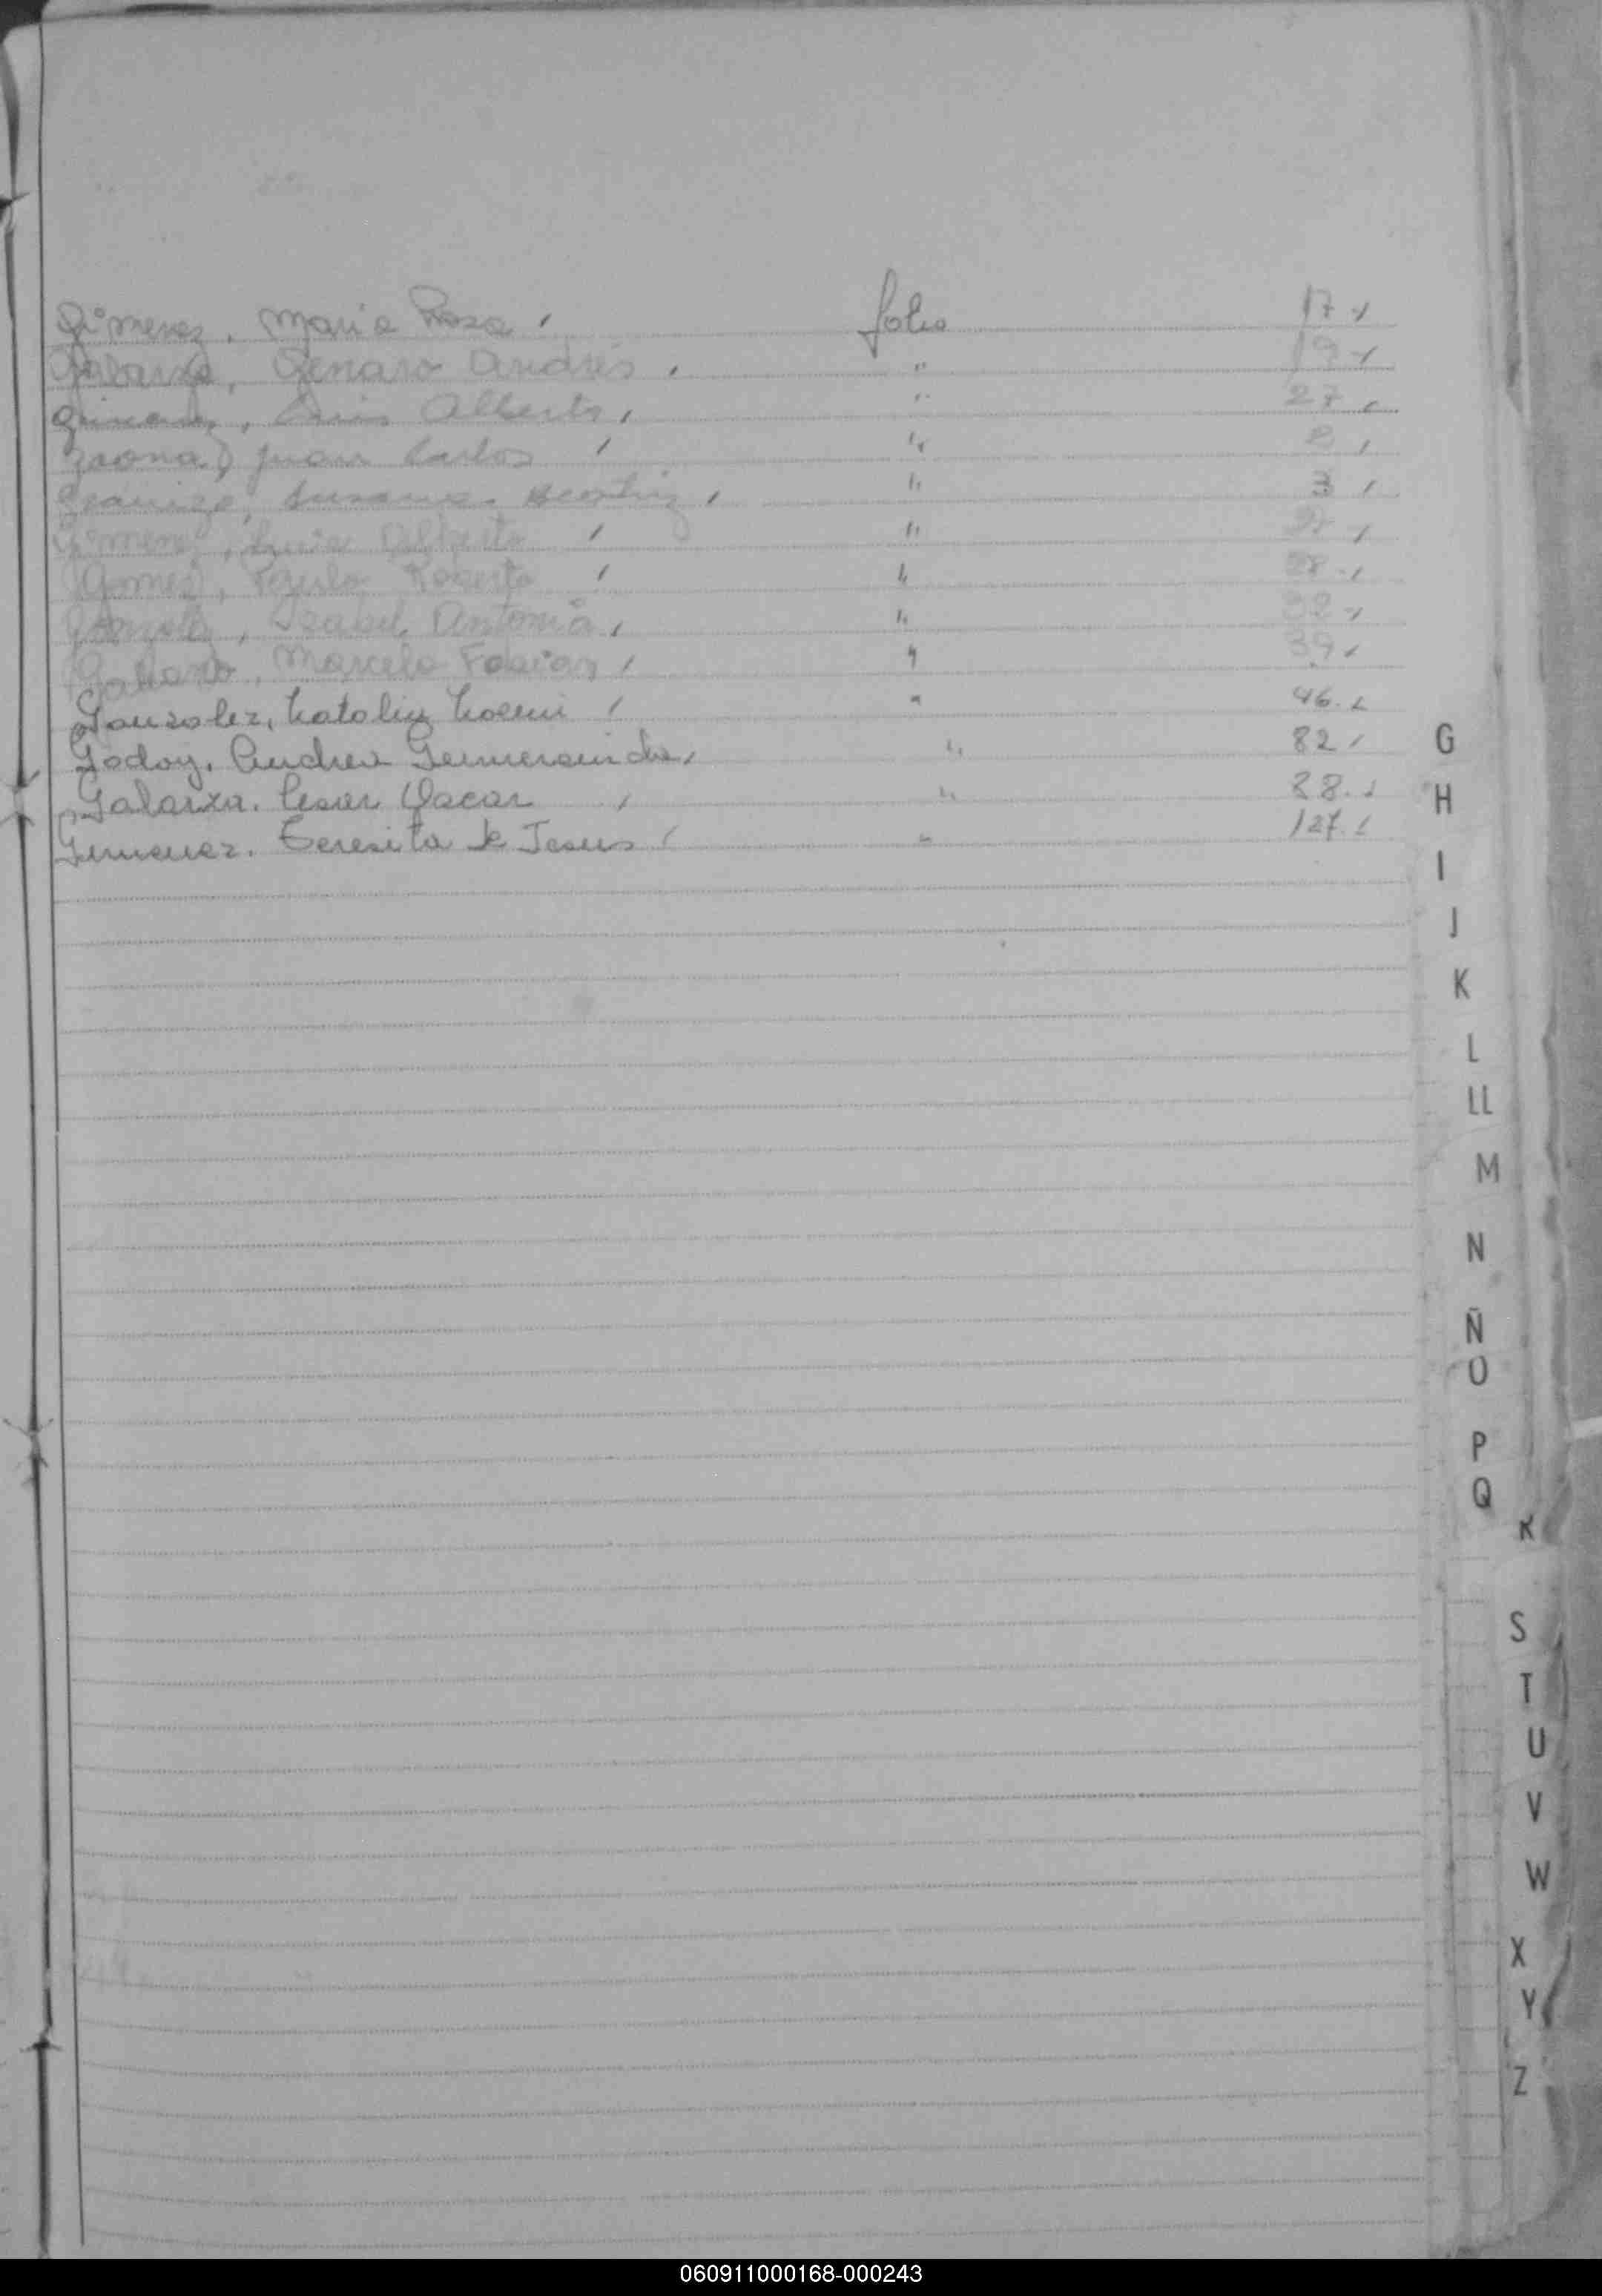 Gimenez, Maria Rosa, folio 17
Galarza, Genaro Andrés, " 19
Luis Alberto, " 27
Gaona, Juan Carlos, "
Susana Beatriz, " 3
Gimenez, Luis Alberto, "
Gomez, Roberto, " 28
Gonzalez, Isabel Antonia, " 32
Galiano, Marcelo Fabian, " 39
Gonzalez, Natalia Noemi, " 46.
Godoy, Andrea " 82
G
Galarza. Cesar Oscar, " 88.
H
Gimenez. Teresita de Jesus, " 127.
I
J
K
L
LL
M
N
Ñ
O
P
Q
R
S
T
U
V
W
X
Y
Z
060911000168-000243